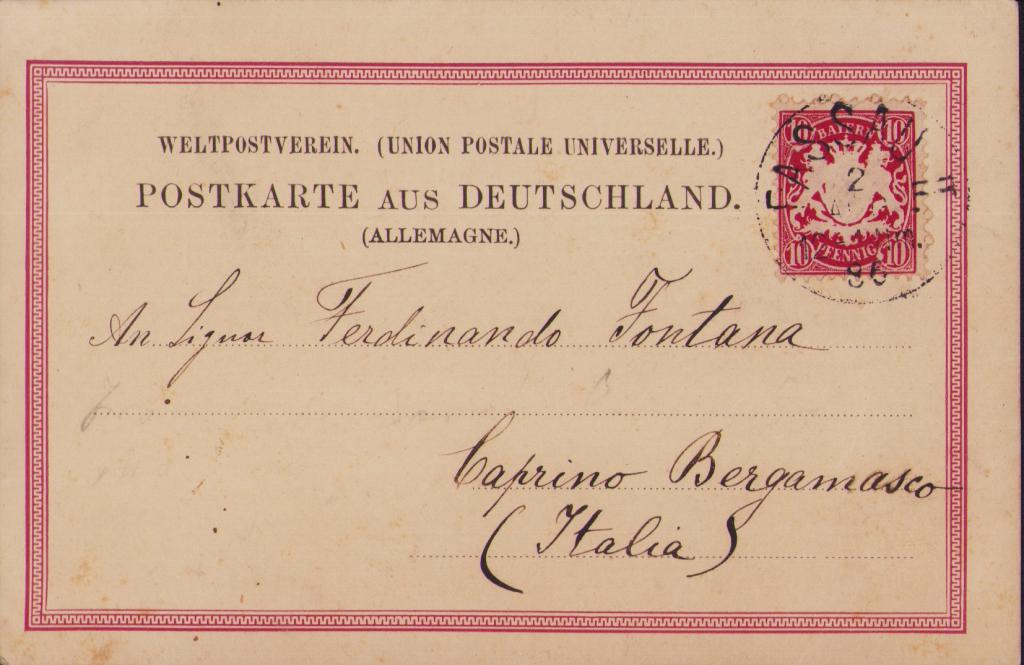 WELTPOSTVEREIN. (UNION POSTALE UNIVERSELLE.)
POSTKARTE AUS DEUTSCHLAND.
(ALLEMAGNE.)
10 BAYERN 10
10 PFENNIG 10
PASSAU II
2
86
An Signor Ferdinando Fontana
Caprino Bergamasco
(Italia)